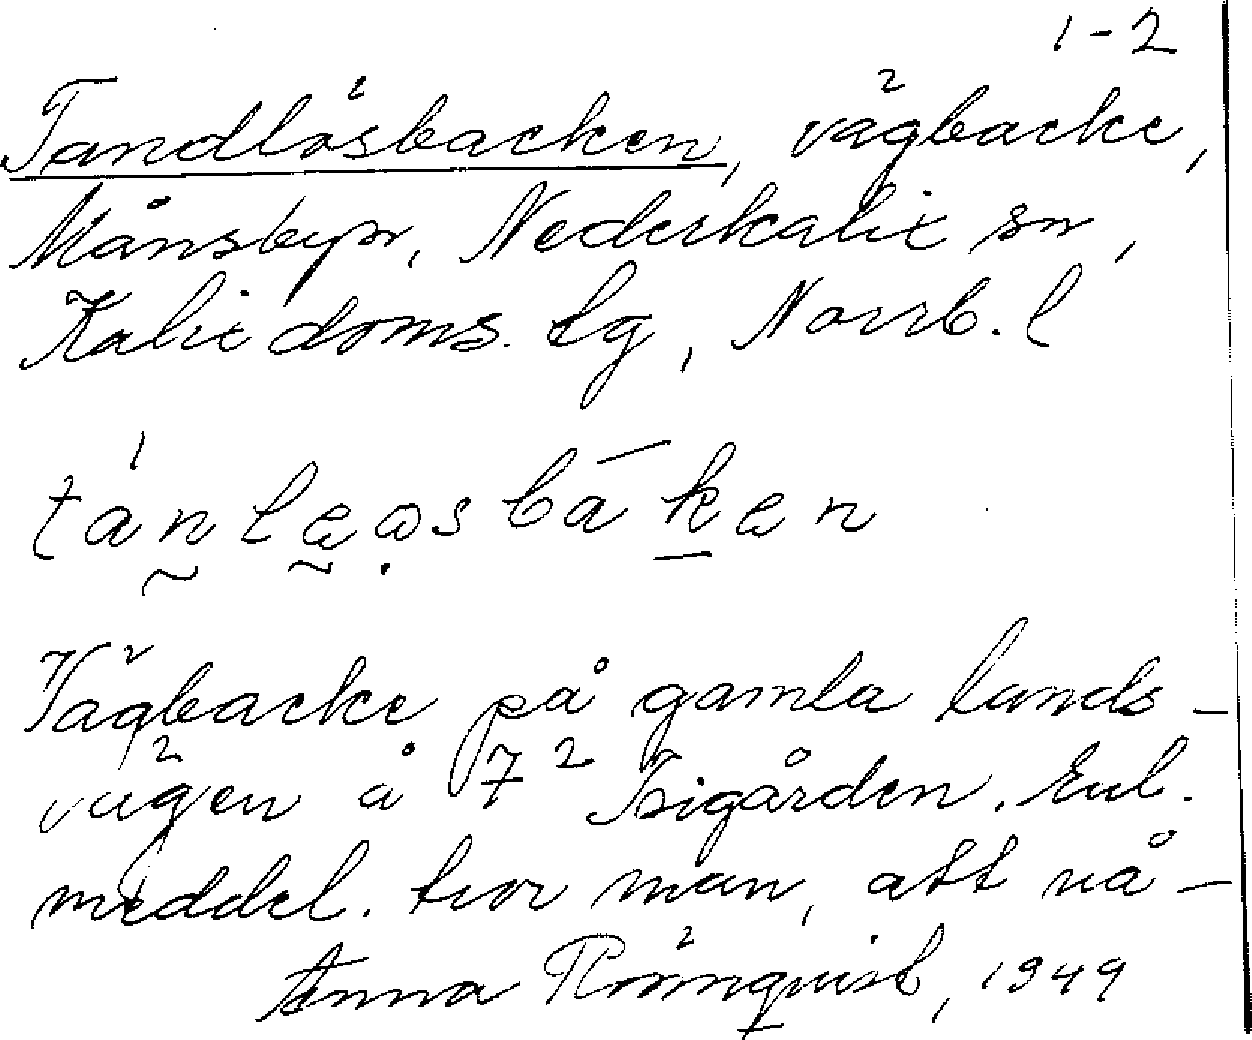 1-2
Tandlösbacken, vägbacke,
Månsbyn, Nederkalix sn,
Kalix doms. lg, Norrb. l
tánleøsbāken
Vägbacke på gamla lands-
vägen å 7² Isigården. Enl.
meddel. tror man, att nå-
Anna Rönnqvist, 1949